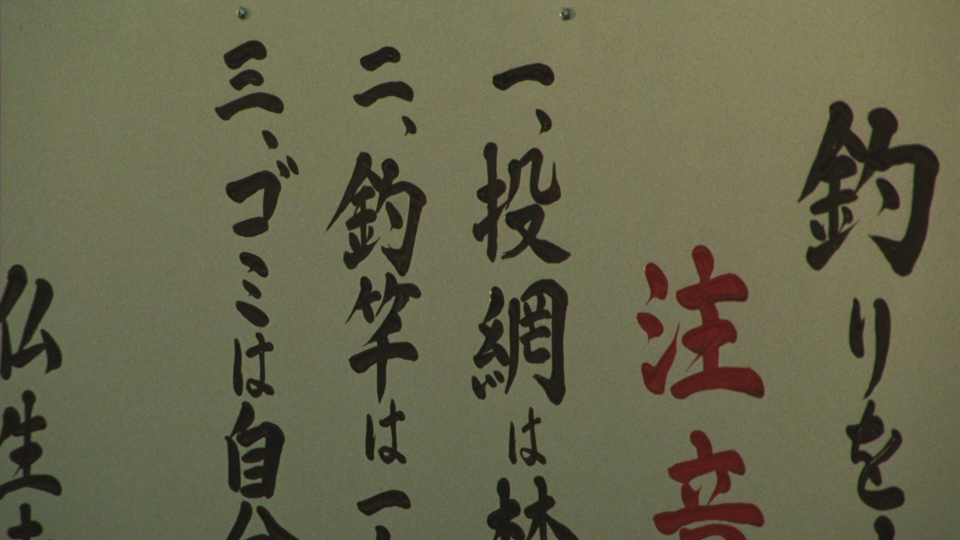 釣りを
注意
一、投網は禁
二、釣竿は一
三、ゴミは自分
仏生